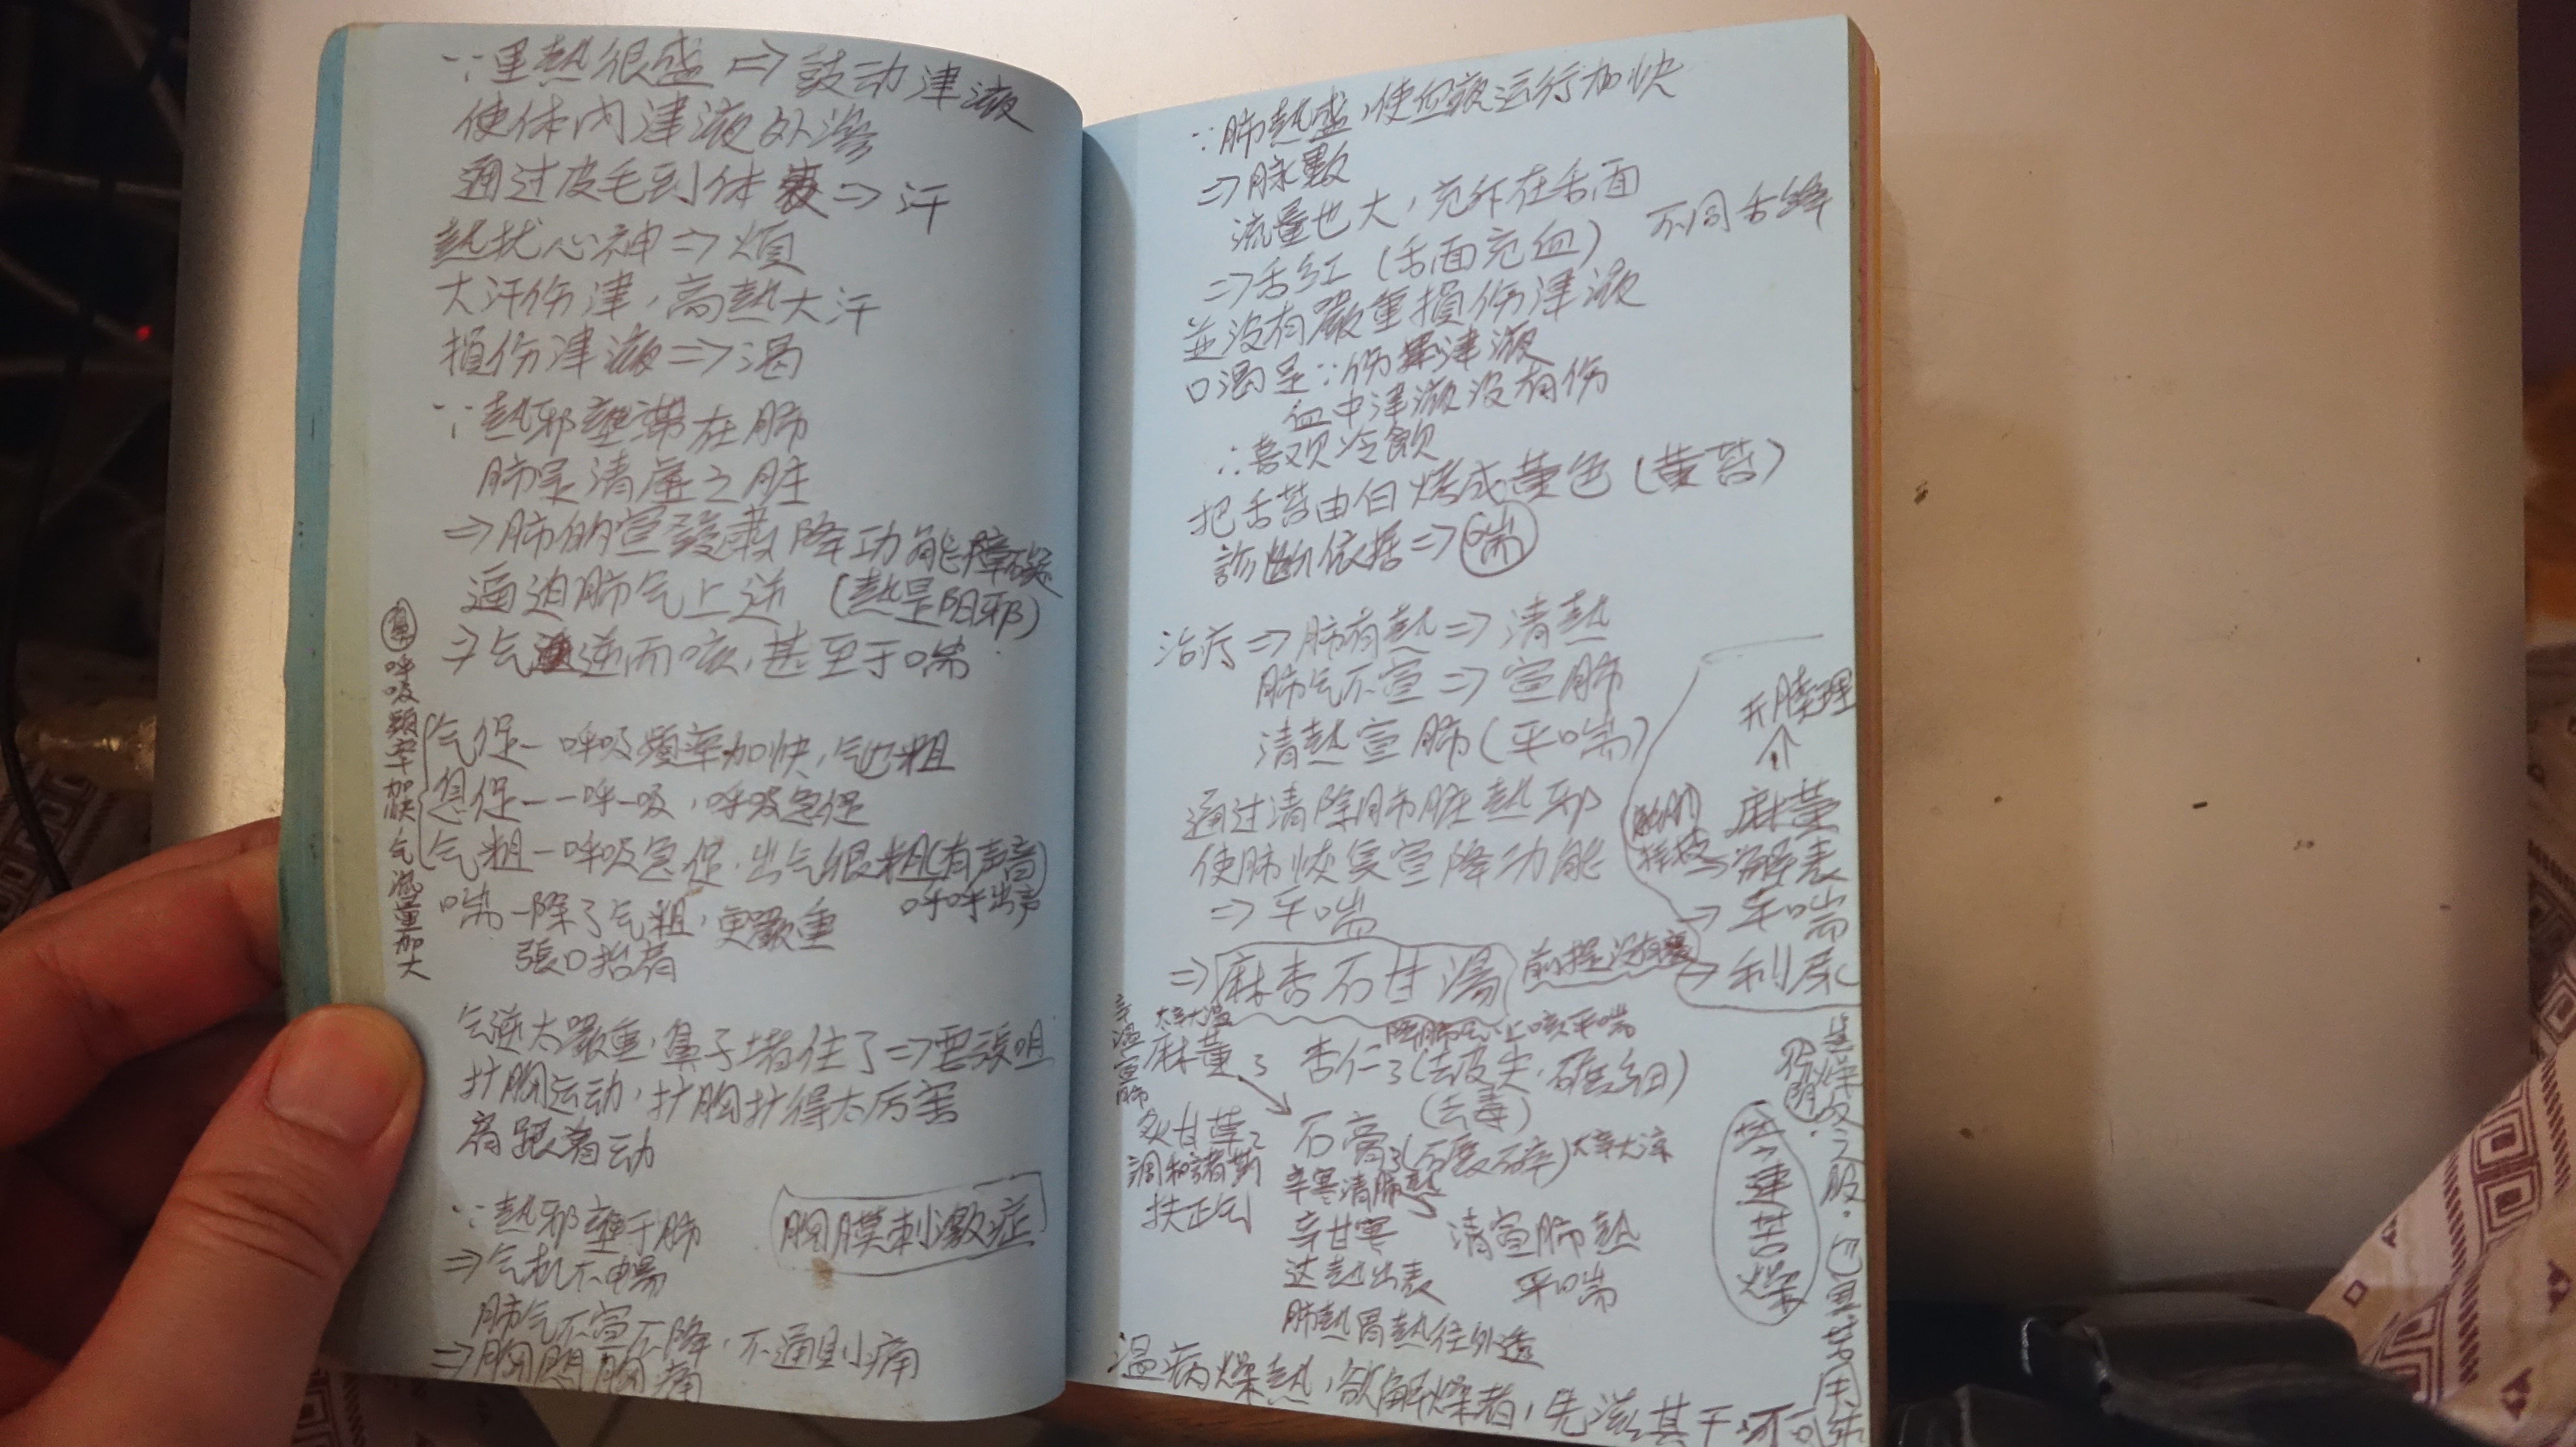 ∵里熱很盛 ⇒ 鼓动津液
使体内津液外渗
通过皮毛到体表 ⇒ 汗
熱扰心神 ⇒ 煩
大汗伤津，高熱大汗
損伤津液 ⇒ 渴
∵熱邪壅滞在肺
肺是清虚之脏
⇒ 肺的宣發肃降功能障碍
逼迫肺气上逆 (熱是阳邪)
⇒ 气逆而咳，甚至于喘
呼吸頻率加快气流量加大
气促 — 呼吸頻率加快，气也粗
息促 — 一呼一吸，呼吸急促
气粗 — 呼吸急促，出气很粗(有声音)
呼呼出声
喘 — 除了气粗，更嚴重
張口抬肩
气逆太嚴重，鼻子堵住了 ⇒ 要張咀
扩胸运动，扩胸扩得太厉害
肩跟着动
∵熱邪壅于肺
⇒ 气机不畅
胸膜刺激症
肺气不宣不降，不通則痛
⇒ 胸悶胸痛
∵肺熱盛，使血液运行加快
⇒ 脉數
流量也大，充斥在舌面
⇒ 舌红 (舌面充血) 不同舌絳
並没有嚴重損伤津液
口渴是∵伤津液
血中津液没有伤
∴喜欢冷飲
把舌苔由白烤成黄色 (黄苔)
診斷依据 ⇒ 喘
治疗 ⇒ 肺有熱 ⇒ 清熱
肺气不宣 ⇒ 宣肺
清熱宣肺 (平喘)
通过清除肺脏熱邪
使肺恢复宣降功能
⇒ 平喘
⇒ 麻杏石甘湯
前提没有
开腠理
⇑
麻黄
⇒ 解表
⇒ 平喘
⇒ 利尿
辛温宣肺
麻黄3
降肺气，止咳平喘
杏仁3 (去皮尖，碓細)
(去毒)
炙甘草2
調和諸药
扶正气
石膏3 (石展碎) 大辛大凉
辛寒清肺熱
辛甘寒
达熱出表
肺熱胃熱往外透
清宣肺熱
平喘
芩連苦燥
伤阴
温病燥熱，欲解燥者，先滋其干，不可用